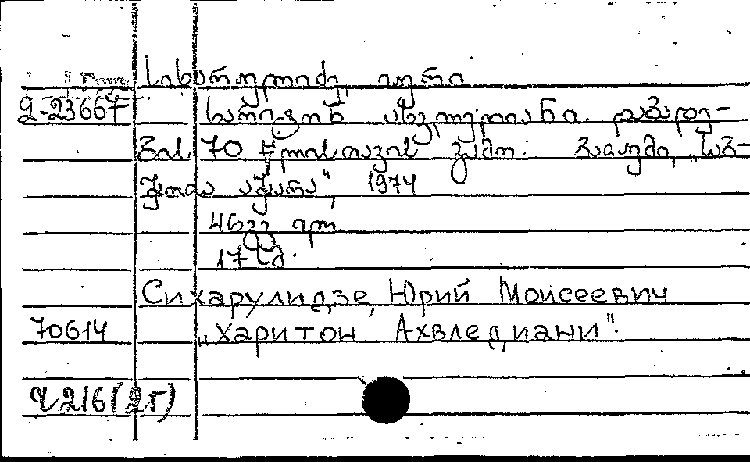 სიხარულიძე, იური
2-23667 ხარიტონ ახვლედიანი. დაბადე-
ბის 70 წლისთავის გამო. ბათუმი, "საბ-
ჭოთა აჭარა", 1974
46გვ.
17 სმ.
Сихарулидзе, Юрий Моисеевич
70614 „Харитон Ахвледиани".
216(2г)